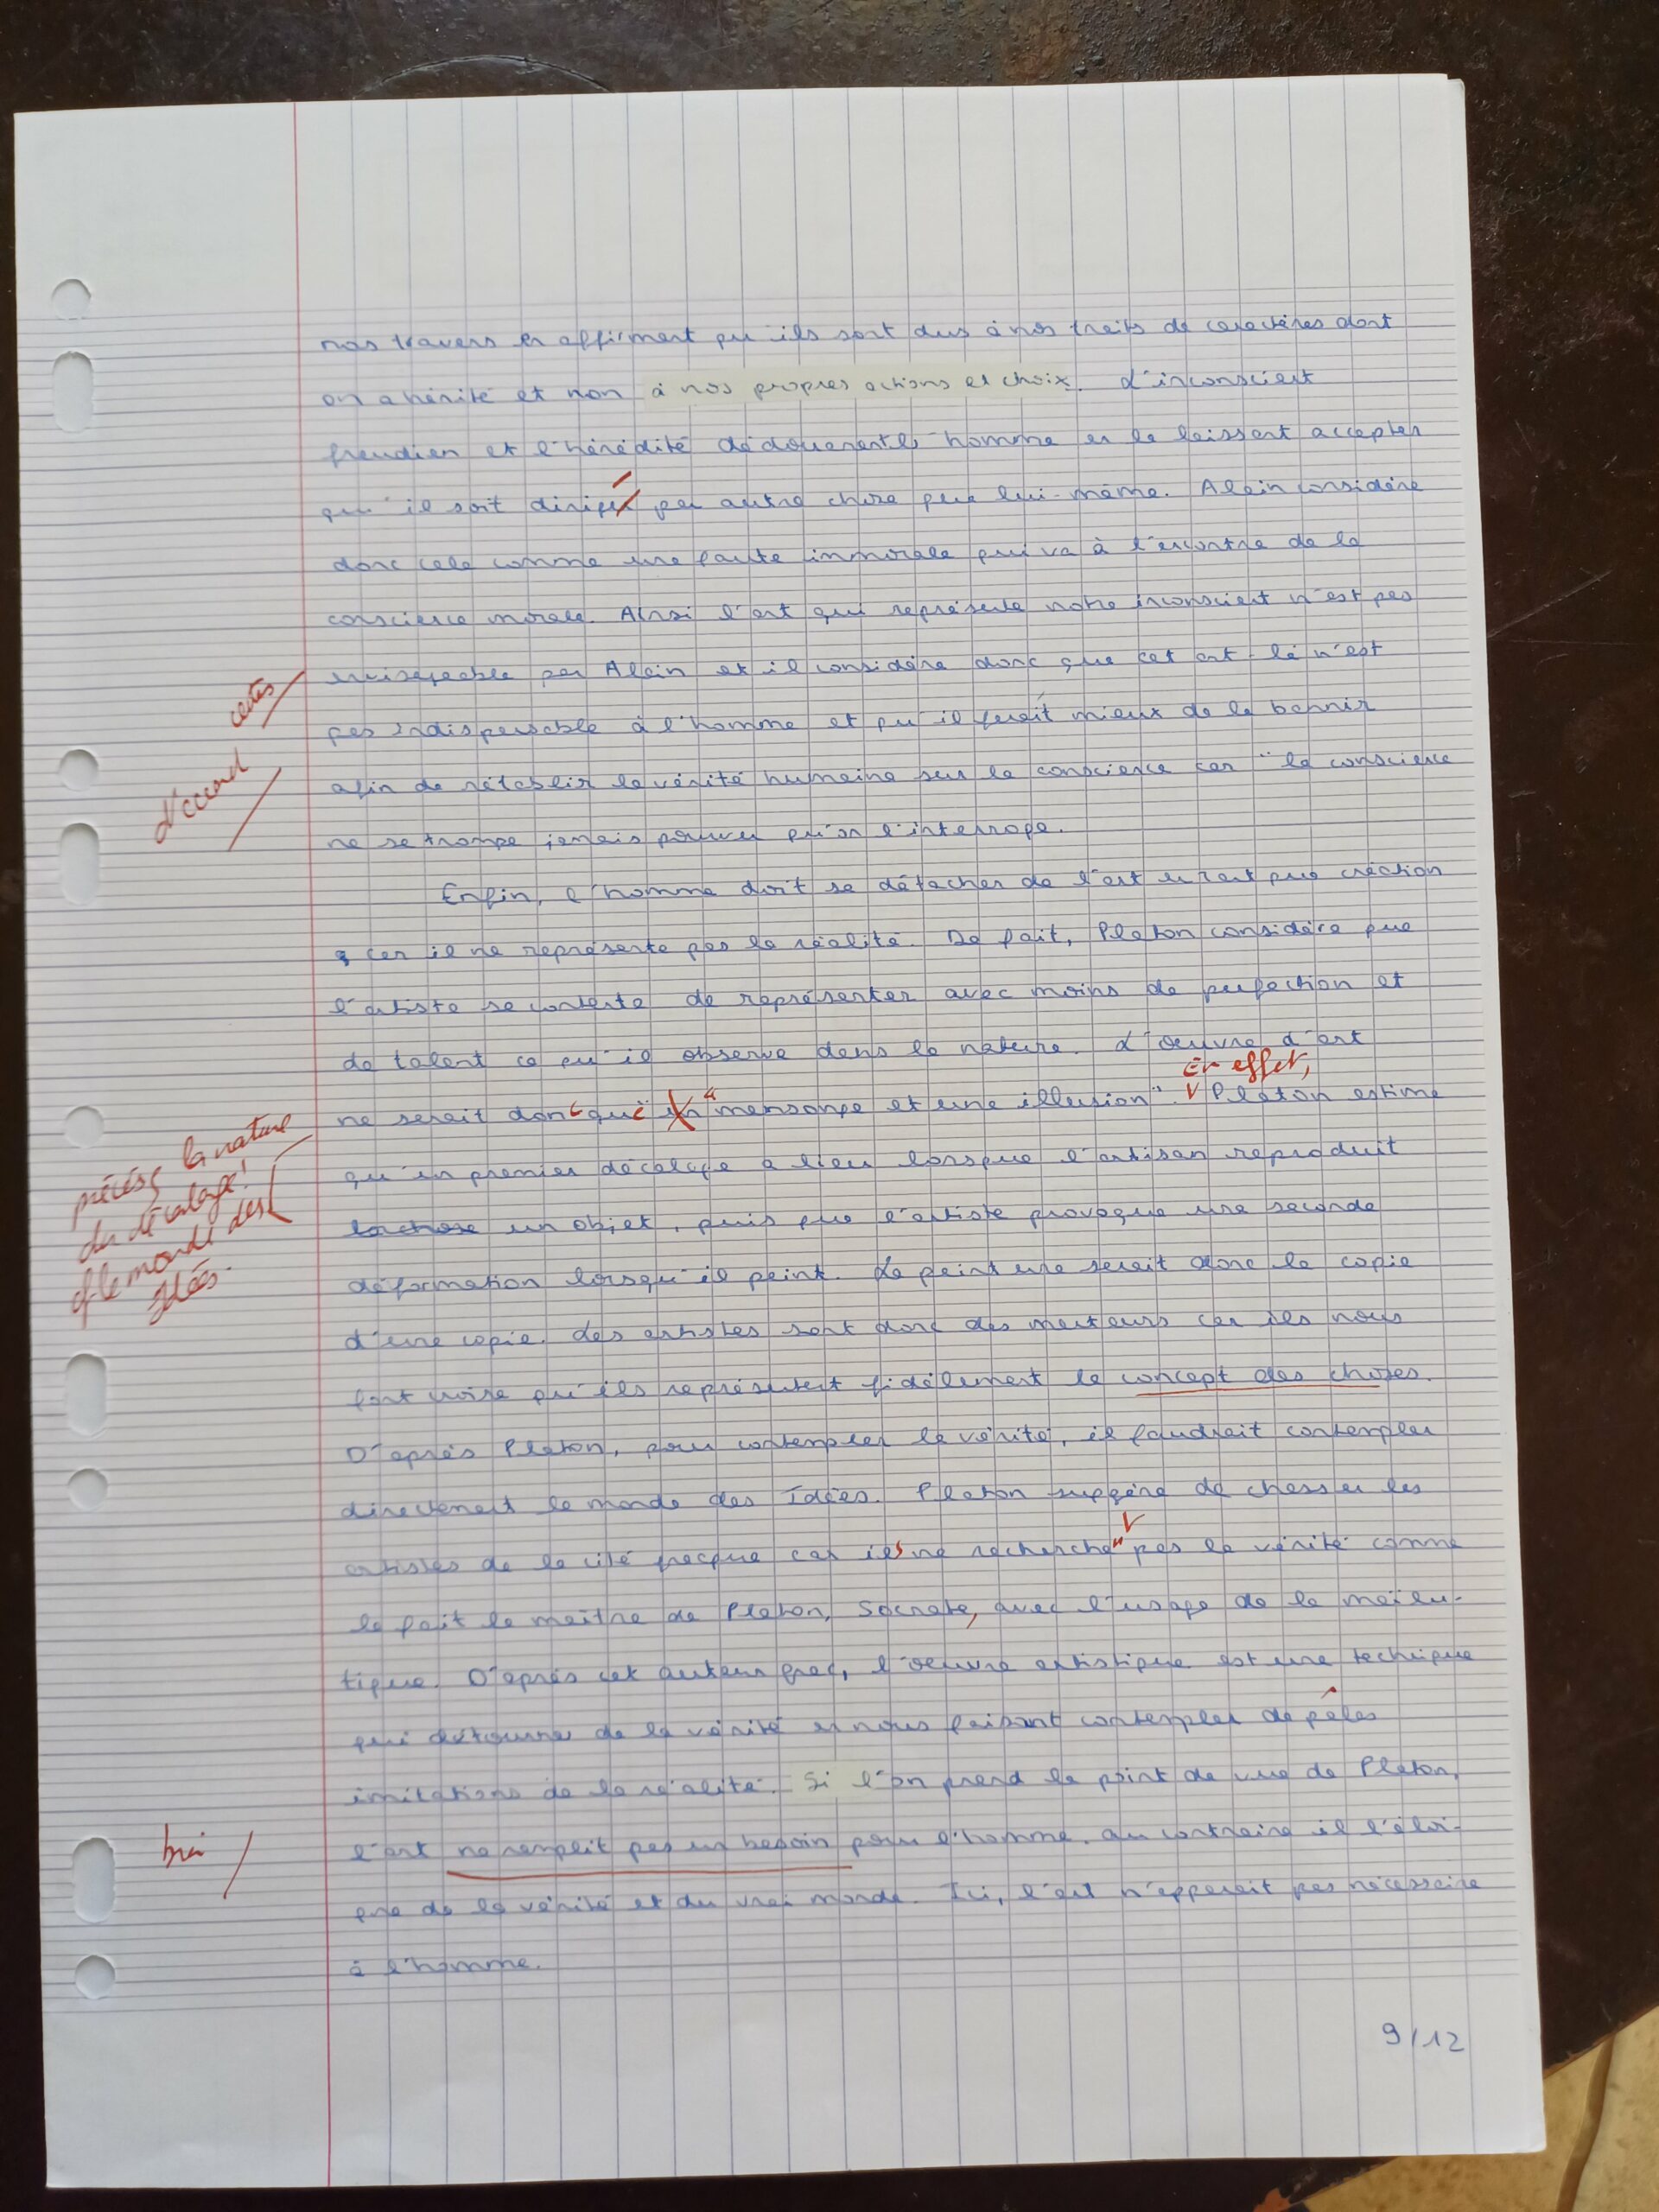 nos travers en affirmant qu'ils sont dus à nos traits de caractères dont
on a hérité et non à nos propres actions et choix. L'inconscient
freudien et l'hérédité dédouanent l'homme en le laissant accepter
qu'il soit dirigé par autre chose que lui-même. Alain considère
donc cela comme une faute immorale qui va à l'encontre de la
conscience morale. Ainsi l'art qui représente notre inconscient n'est pas
envisageable par Alain et il considère donc que cet art-là n'est
certes
pas indispensable à l'homme et qu'il ferait mieux de le bannir
d'accord
afin de rétablir la vérité humaine sur la conscience car "la conscience
ne se trompe jamais pourvu qu'on l'interroge.
Enfin, l'homme doit se détacher de l'art en tant que création
car il ne représente pas la réalité. De fait, Platon considère que
l'artiste se contente de représenter avec moins de perfection et
de talent ce qu'il observe dans la nature. L'oeuvre d'art
En effet,
ne serait donc que "mensonge et une illusion". Platon estime
précisez la nature
du décalage!
cf le monde des
Idées.
qu'un premier décalage a lieu lorsque l'artisan reproduit
la chose un objet, puis que l'artiste provoque une seconde
déformation lorsqu'il peint. La peinture serait donc la copie
d'une copie. Les artistes sont donc des menteurs car ils nous
font croire qu'ils représentent fidèlement le concept des choses.
D'après Platon, pour contempler la vérité, il faudrait contempler
directement le monde des Idées. Platon suggère de chasser les
artistes de la cité grecque car ils ne recherche pas la vérité comme
le fait le maître de Platon, Socrate, avec l'usage de la maïeu-
tique. D'après cet auteur grec, l'oeuvre artistique est une technique
qui détourne de la vérité en nous faisant contempler de pâles
imitations de la réalité. Si l'on prend le point de vue de Platon,
l'art ne remplit pas un besoin pour l'homme, au contraire il l'éloi-
gne de la vérité et du vrai monde. Ici, l'art n'apparait pas nécessaire
à l'homme.
9/12